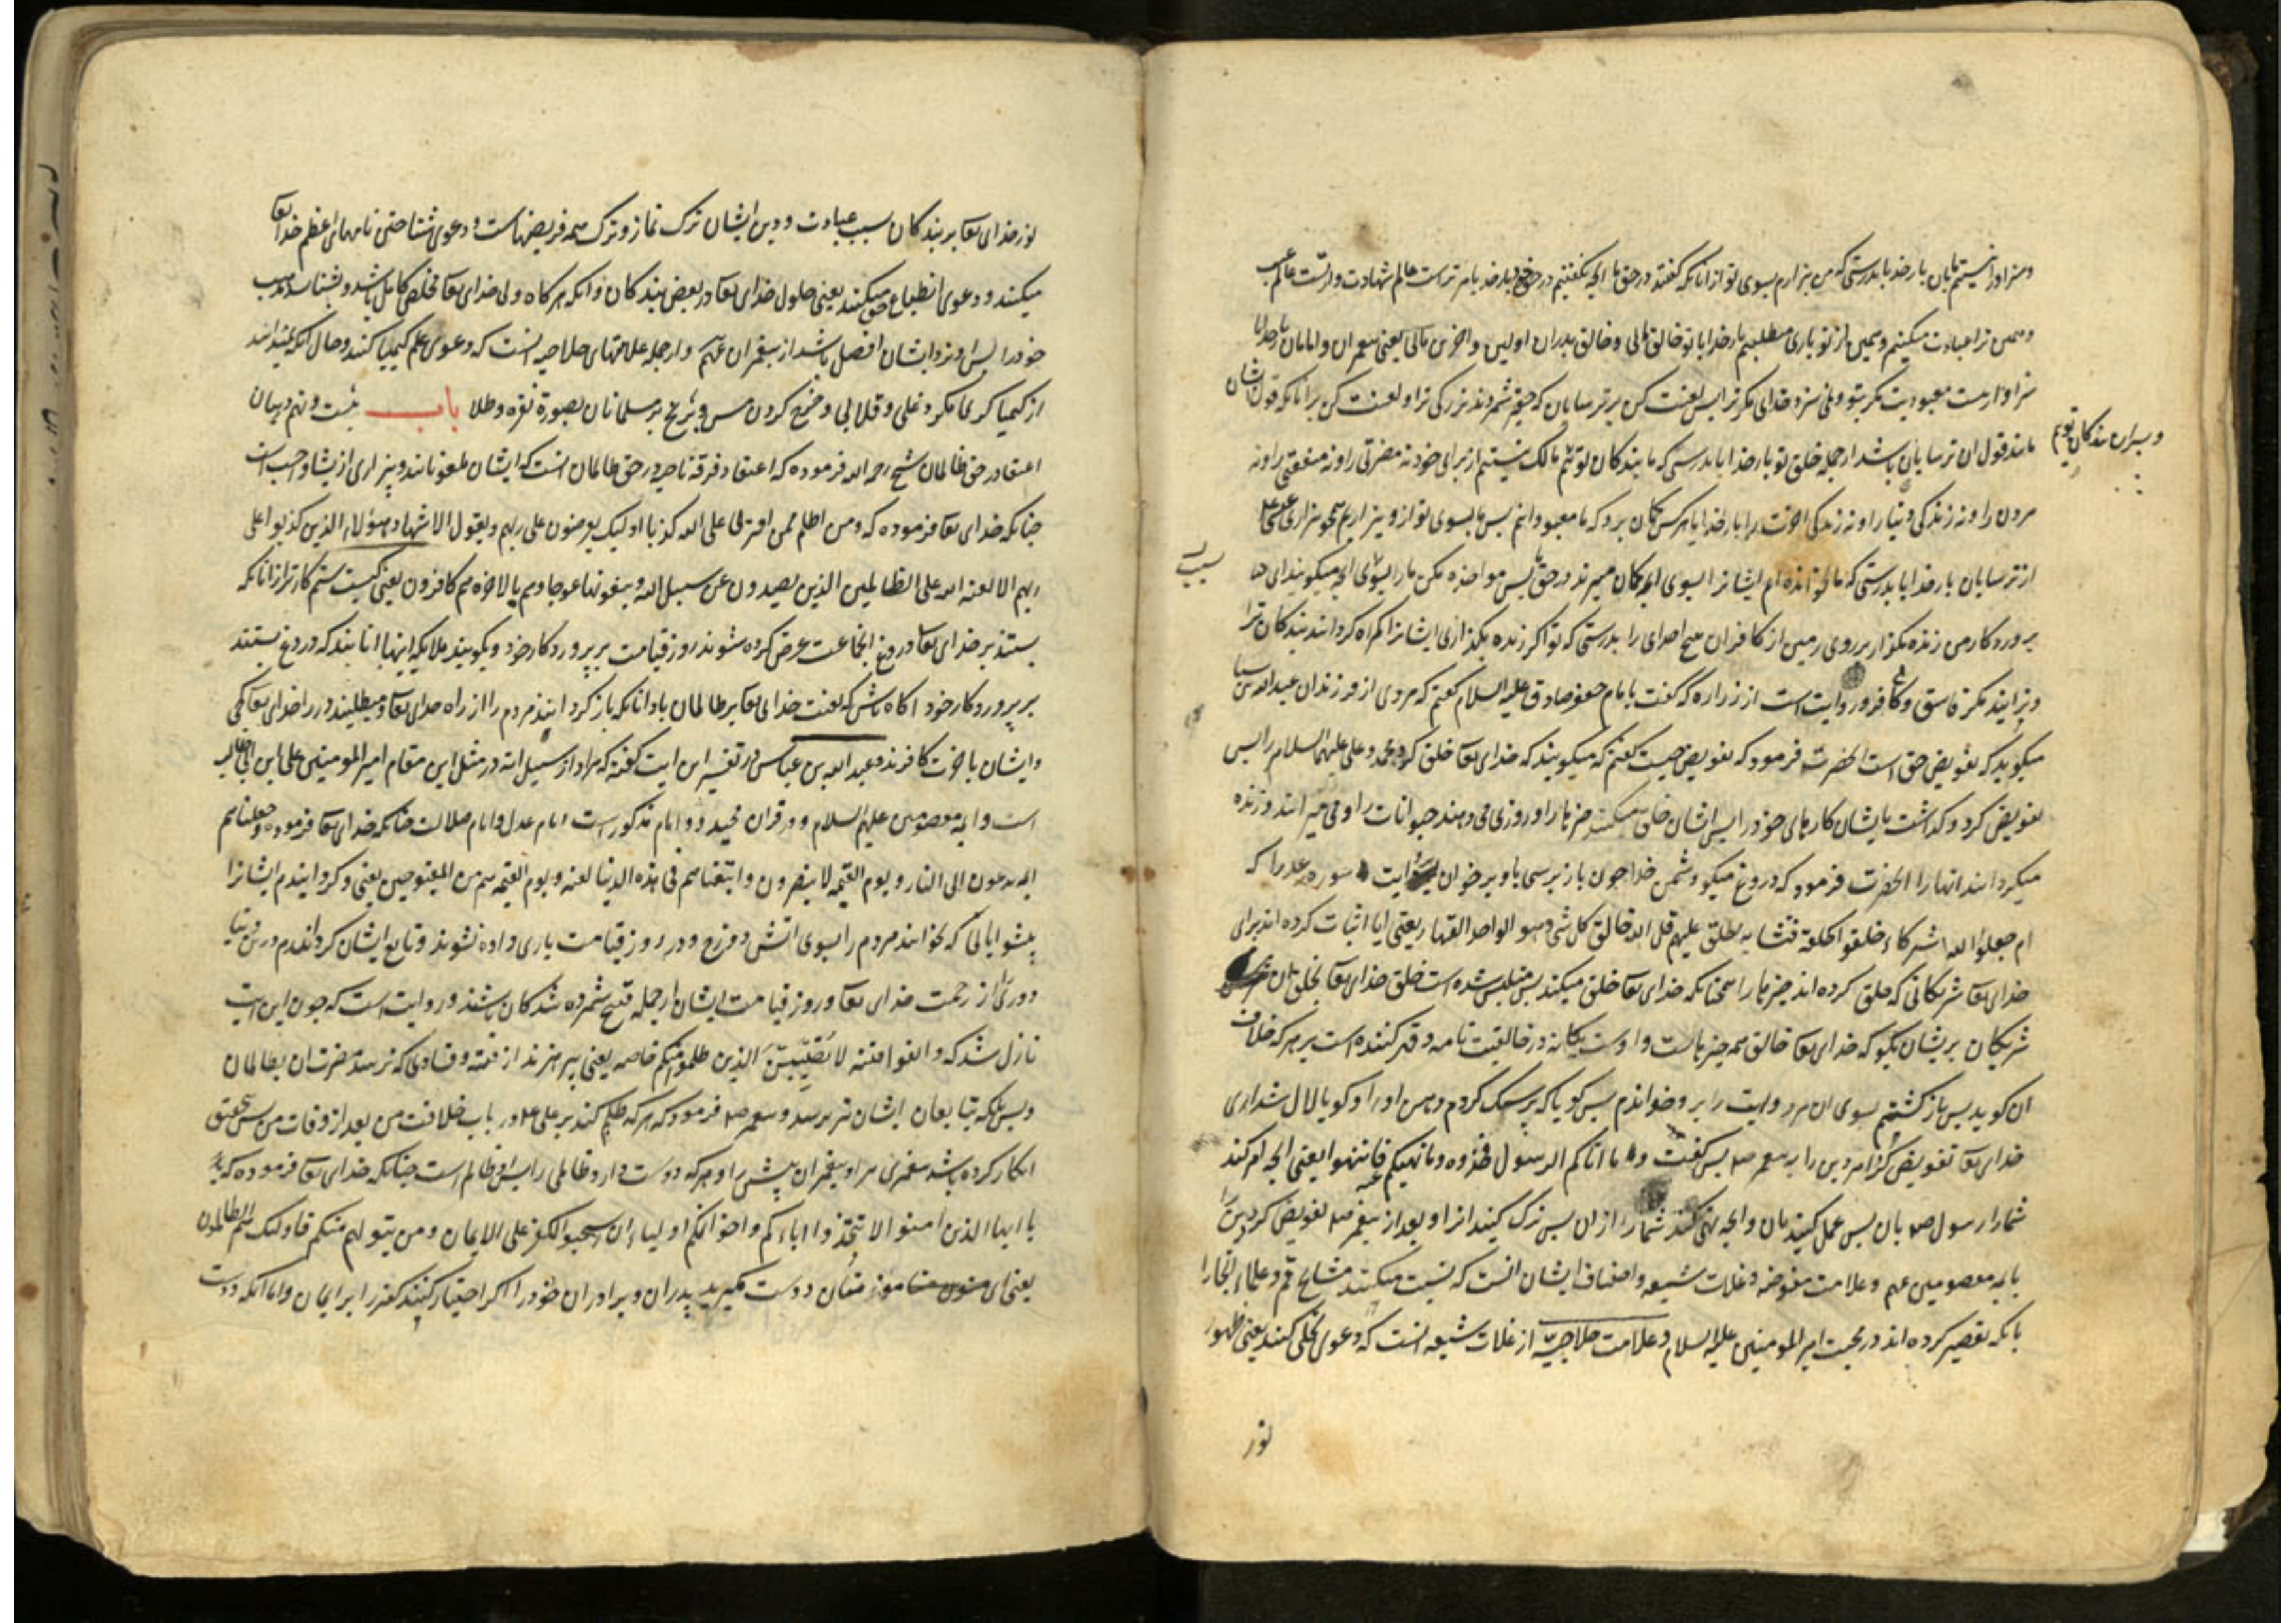 و سزاوار نیستم بان بار خدایا بدرستی که من بیزارم بسوی تو از انانکه گفتند در حق ما انچه نگفتیم در حق خود بار خدایا مر تراست عالم شهادت
و همین ترا عبادت میکنیم و همین از تو یاری مطلبیم بار خدایا تو خالق مائی و خالق پدران اولین و اخرین مائی یعنی پیغمبران و امامان بار خدایا
سزاوار نیست معبودیت مگر بتو و نمی سزد خدائی مگر ترا پس لعنت کن بر ترسایان که حقیر شمردند بزرکی ترا و لعنت کن بر انانکه قول ایشان
مانند قول ان ترسایان باشد از جمله خلق تو بار خدایا بدرستی که ما بندکان توئیم مالک نیستیم از برای خود نه مضرتی را و نه منفعتی را و نه
و پسران بندکان توئیم
مردن را و نه زندکی دنیا را و نه زندکی اخرت را بار خدایا هر کس کمان برد که ما معبودانیم پس ما بسوی تو از و بیزاریم همچو بیزاری عیسی
از ترسایان بار خدایا بدرستی که ما نخوانده ام ایشانرا بسوی انچه کمان میبرند در حق ما پس مواخذه مکن ما را بسوی انچه میکویند ای
پروردکار من زنده مکذار بر روی زمین از کافران هیچ احدی را بدرستی که تو اکر زنده بکذاری ایشانرا کمراه کردانند بندکان ترا
و نزایند مکر فاسق و کافر و روایت است از زراره که گفت بامام جعفر صادق علیه السلام گفتم که مردی از فرزندان عبدالله بن سبا
میکوید که تفویض حق است انحضرت فرمود که تفویض چیست گفتم که میکویند که خدای تعا خلق کرد محمد و علی علیهما السلام را پس
تفویض کرد و کذاشت بایشان کارهای خود را پس ایشان خلق میکنند چیزها را و روزی می دهند حیوانات را و می میرانند و زنده
میکردانند انها را انحضرت فرمود که دروغ میکوید دشمن خدا چون باز برسی باو بر خوان ایت سوره رعد را که
ام جعلوا لله شرکاء خلقوا کخلقه فتشابه الخلق علیهم قل الله خالق کل شی وهو الواحد القهار یعنی ایا اثبات کرده اند برای
خدای تعا شریکانی که خلق کرده اند چیزها را همچنانکه خدای تعا خلق میکند پس مشابه شده است خلق خدای تعا بخلق ان
شریکان بریشان بکو که خدای تعا خالق همه چیزهاست و اوست یکانه در خالقیت تامه و قهر کننده است بر هر که خلاف
ان کوید پس باز کشتم بسوی ان مرد و ایت را برو خواندم پس کویا که بر سنک کردم دهن او را و کویا لال شد راوی
خدای تعا تفویض کرد امر دین را به پیغمبر ص پس گفت و ما اتاکم الرسول فخذوه و ما نهیکم عنه فانتهوا یعنی انچه امر کند
شما را رسول ص بان پس عمل کنید بان و انچه نهی کند شما را از ان پس ترک کنید انرا و بعد از پیغمبر ص تفویض کرد دین را
بایمه معصومین عم و علامت مفوضه و غلات شیعه و اصناف ایشان انست که نسبت میکنند مشایخ قم و علماء انجا را
بانکه تقصیر کرده اند در محبت امیر المومنین علیه السلام و علامت حلاجیّه از غلات شیعه انست که دعوی تجلی کنند یعنی ظهور
نور
نور خدای تعا بر بندکان سبب عبادت و دین ایشان ترک نماز و ترک همه فریضهاست و دعوی شناختن نامهای اعظم خدا تعا
میکنند و دعوی انطباع حق میکنند یعنی حلول خدای تعا در بعض بندکان و انکه هر کاه ولی خدای تعا مخلص کامل باشد و بشناسد مذهب
خود را پس او نزد ایشان افضل باشد از پیغمبران عهم و از جمله علامتهای حلاجیه انست که دعوی علم کیمیا کنند و حال انکه نمیدانند
از کیمیا کری مکر دغلی و قلابی و خرج کردن مس و برنج بر مسلمانان بصورة نقره و طلا باب بیست و نهم در بیان
اعتقاد در حق ظالمان شیخ رحمه الله فرموده که اعتقاد فرقه ناجیه در حق ظالمان انست که ایشان ملعونانند و بیزاری از ایشان واجب است
چنانکه خدای تعا فرموده که ومن اظلم ممن افتری علی الله کذبا اولیک یعرضون علی ربهم ویقول الاشهاد هؤلاء الذین کذبوا علی
ربهم الا لعنة الله علی الظالمین الذین یصدون عن سبیل الله ویبغونها عوجا وهم بالاخرة هم کافرون یعنی کیست ستم کارتر از انانکه
بستند بر خدای تعا دروغ انجماعت عرض کرده شوند روز قیامت بر پروردکار خود و بکویند ملایکه اینها انانند که دروغ بستند
بر پروردکار خود اکاه باش که لعنت خدای تعا بر ظالمان باد انانکه باز کردانیدند مردم را از راه خدای تعا و میطلبند در راه خدای تعا کجی
و ایشان باخرت کافرند و عبد الله بن عباس در تفسیر این ایت گفته که مراد از سبیل الله در مثل این مقام امیر المومنین علی ابن ابی طالب
است و ایمه معصومین علیهم السلام و در قران مجید دو امام مذکور است امام عدل و امام ضلالت چنانکه خدای تعا فرموده و جعلناهم
ایمه یدعون الی النار و یوم القیمه لا ینصرون و اتبعناهم فی هذه الدنیا لعنه و یوم القیمه هم من المقبوحین یعنی و کردانیدیم ایشانرا
پیشوایانی که بخوانند مردم را بسوی اتش دوزخ و در روز قیامت یاری داده نشوند و تابع ایشان کردانیدیم درین دنیا
دوری از رحمت خدای تعا و روز قیامت ایشان از جمله قبیح شمرده شدکان باشند و روایت است که چون این ایت
نازل شد که واتقوا فتنة لا تُصیبَنَّ الذین ظلموا منکم خاصه یعنی بپرهیزید از فتنه و فسادی که نرسد مضرت ان بظالمان
و بس بلکه بتابعان ایشان نیز برسد پیغمبر ص فرمود که هر که ظلم کند بر علی ع در باب خلافت من بعد از وفات من پس بتحقیق
انکار کرده باشد پیغمبری مرا و پیغمبران پیش را و هر که دوست دارد ظالمی را پس او ظالم است چنانکه خدای تعا فرموده که
یا ایها الذین امنوا لا تتخذوا اباءکم و اخوانکم اولیاء ان استحبوا الکفر علی الایمان و من یتولهم منکم فاولئک هم الظالمون
یعنی ای مؤمنان دوست مکیرید پدران و برادران خود را اکر اختیار کنند کفر را بر ایمان و اما انکه دوست